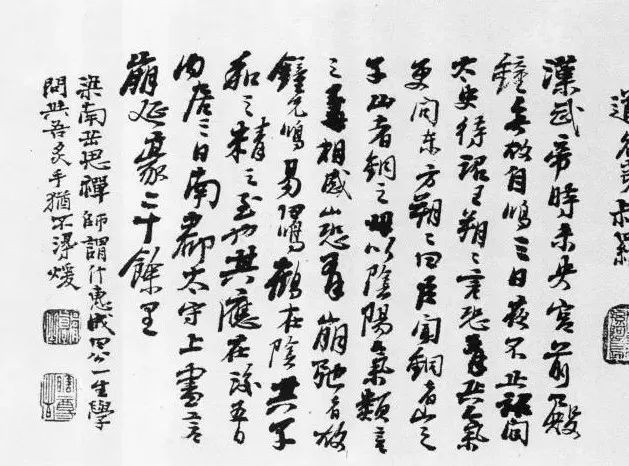 道
漢武帝時未央宮前殿
鐘無故自鳴三日夜不止詔問
太史待詔王朔〻言恐有兵氣
更問東方朔〻曰臣聞銅者山之
子山者銅之母以陰陽氣類言
之 相感山恐有崩弛者故
鐘先鳴易曰鳴鶴在陰其子
和之精之至也其應在後五日
內居三日南郡太守上書言
崩延袤二十餘里
梁南岳思禪師謂 惠成曰公一生學
問與吾炙手猶不得煖